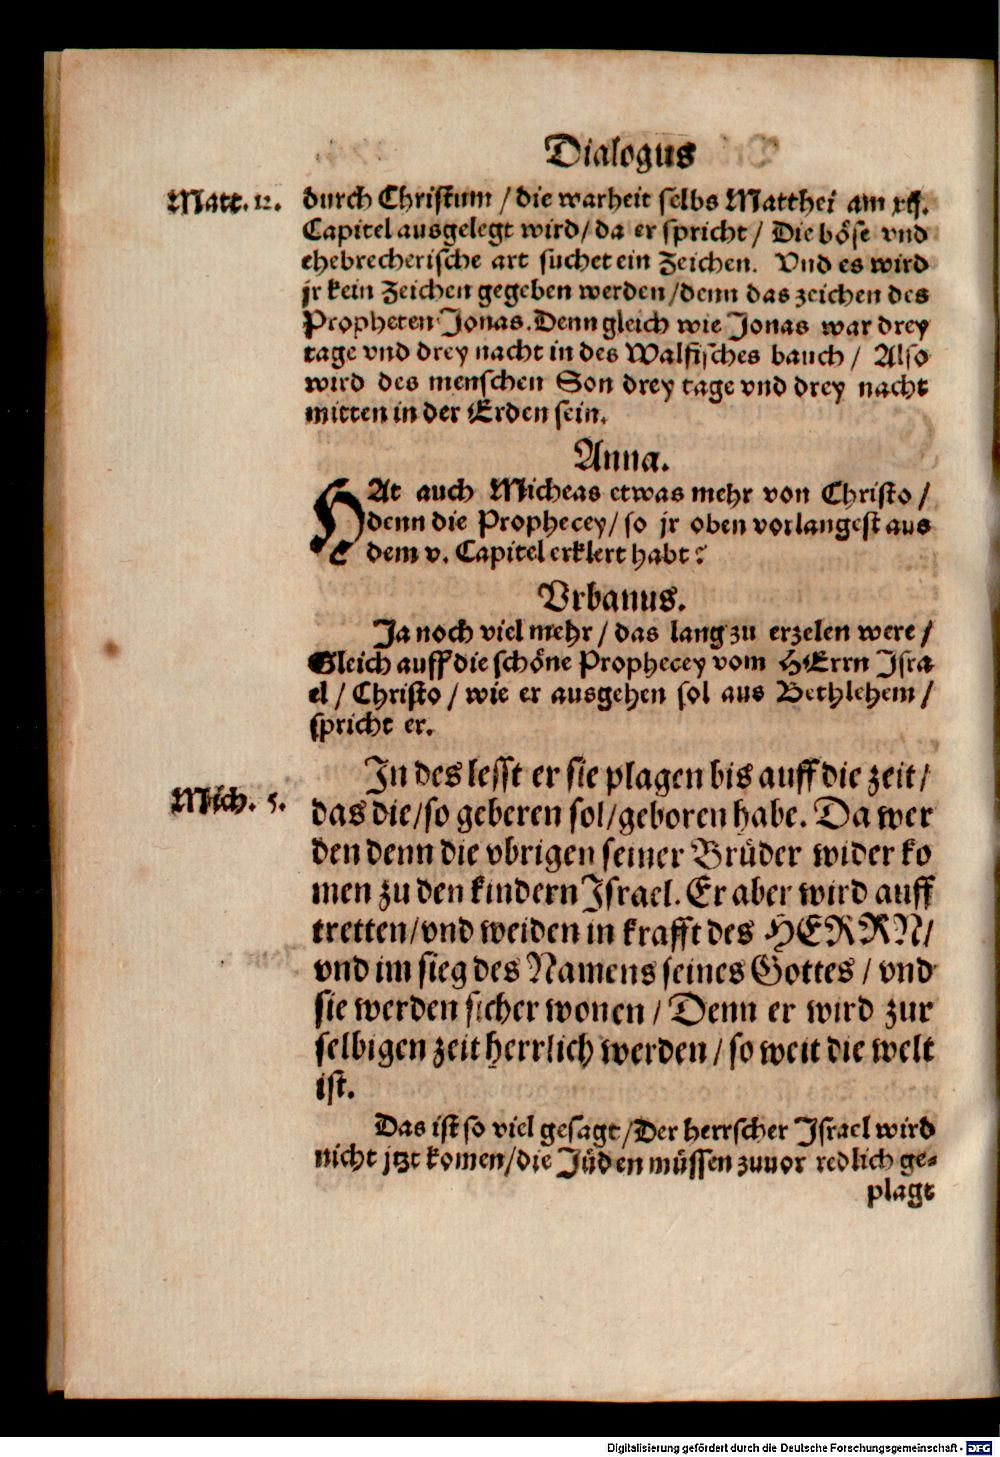 Dialogus
Matt. 12.
durch Christum / die warheit selbs Matthei am xij.
Capitel ausgelegt wird / da er spricht / Die böse vnd
ehebrecherische art suchet ein Zeichen. Vnd es wird
jr kein Zeichen gegeben werden / denn das zeichen des
Propheten Jonas. Denn gleich wie Jonas war drey
tage vnd drey nacht in des Walfisches bauch / Also
wird des menschen Son drey tage vnd drey nacht
mitten in der Erden sein.
Anna.
HAt auch Micheas etwas mehr von Christo /
denn die Prophecey / so jr oben vorlangest aus
dem v. Capitel erklert habt?
Vrbanus.
Ja noch viel mehr / das lang zu erzelen were /
Gleich auff die schöne Prophecey vom HErrn Isra
el / Christo / wie er ausgehen sol aus Bethlehem /
spricht er.
Mich. 5.
In des lesst er sie plagen bis auff die zeit /
das die / so geberen sol / geboren habe. Da wer
den denn die vbrigen seiner Brüder wider ko
men zu den kindern Israel. Er aber wird auff
tretten / vnd weiden in krafft des HERRN /
vnd im sieg des Namens seines Gottes / vnd
sie werden sicher wonen / Denn er wird zur
selbigen zeit herrlich werden / so weit die welt
ist.
Das ist so viel gesagt / Der herrscher Israel wird
nicht jtzt komen / die Jüden müssen zuuor redlich ge-
plagt
Digitalisierung gefördert durch die Deutsche Forschungsgemeinschaft - DFG